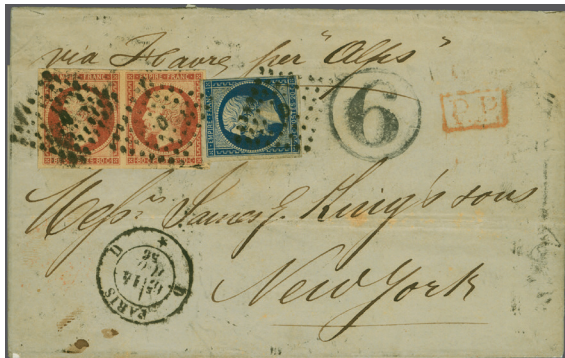 via Havre per "Alps"
EMPIRE FRANC EMPIRE FRANC
6
P.P.
Messrs James G. King's sons
New York
PARIS
D D